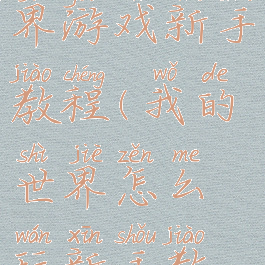 界游戏新手
jiào chéng wǒ de
教程(我的
shì jiè zěn me
世界怎么
wán xīn shǒu jiào
玩新手教